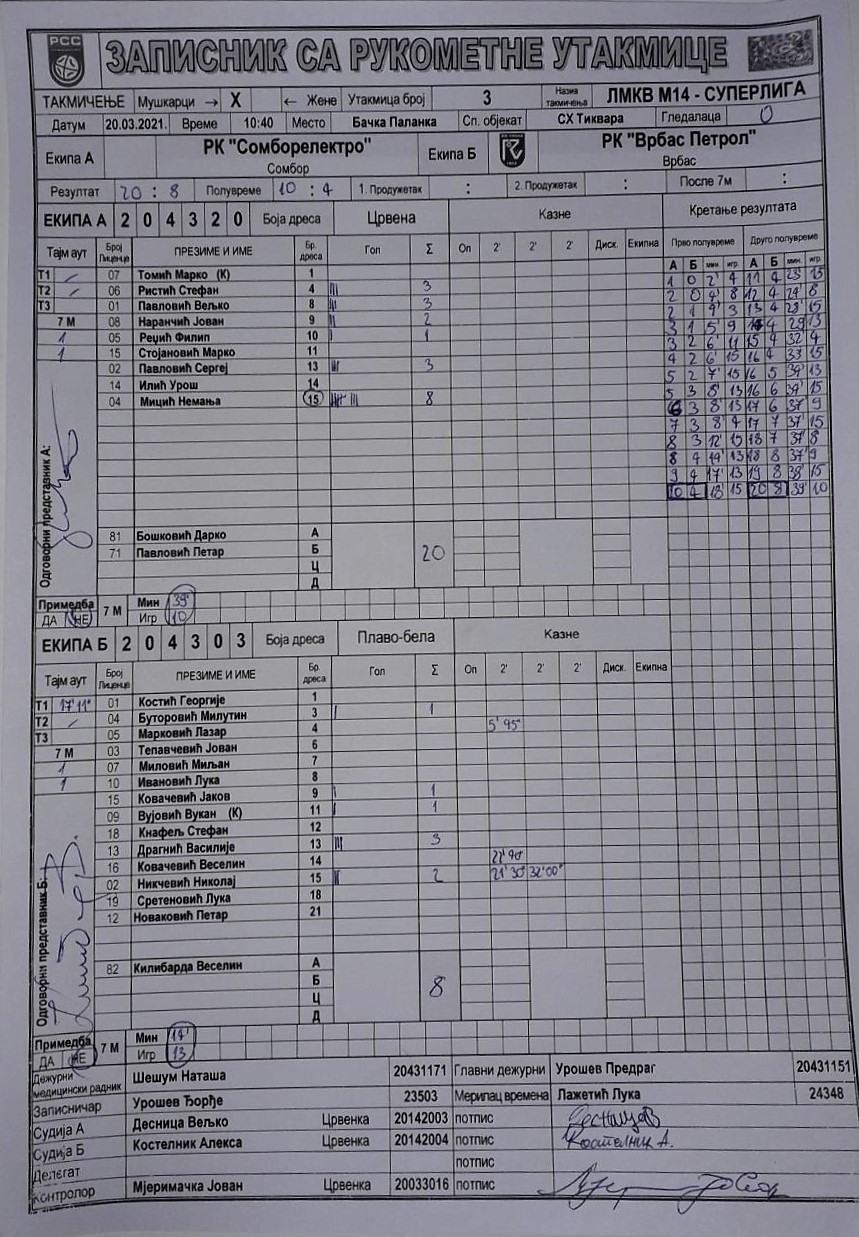 РСС
ЗАПИСНИК СА РУКОМЕТНЕ УТАКМИЦЕ
ТАКМИЧЕЊЕ Мушкарци → X ← Жене Утакмица број 3 Назив такмичења ЛМКВ М14 - СУПЕРЛИГА
Датум 20.03.2021. Време 10:40 Место Бачка Паланка Сп. објекат СХ Тиквара Гледалаца 0
Екипа А РК "Сомборелектро" Сомбор Екипа Б РК "Врбас Петрол" Врбас
Резултат 20 : 8 Полувреме 10 : 4 1. Продужетак : 2. Продужетак : После 7м :
ЕКИПА А 2 0 4 3 2 0 Боја дреса Црвена Казне Кретање резултата
Тајм аут Број Лиценце ПРЕЗИМЕ И ИМЕ Бр. дреса Гол Σ Оп 2' 2' 2' Диск. Екипна Прво полувреме Друго полувреме
А Б мин. игр. А Б мин. игр.
Т1 / 07 Томић Марко (К) 1
Т2 / 06 Ристић Стефан 4 III 3
Т3 01 Павловић Вељко 8 III 3
7 М 08 Наранчић Јован 9 II 2
1 05 Рецић Филип 10 I 1
1 15 Стојановић Марко 11
02 Павловић Сергеј 13 III 3
14 Илић Урош 14
04 Мицић Немања 15 IIII III 8
1 0 2' 4 11 4 23' 15
2 0 4' 8 12 4 24' 8
2 1 4' 3 13 4 28' 15
3 1 5' 9 4 29' 13
3 2 6' 11 15 4 32' 4
4 2 6' 15 16 4 33' 15
5 2 7' 15 16 5 34' 13
5 3 8' 13 16 6 34' 15
6 3 8' 13 17 6 37' 9
7 3 8' 4 17 7 37' 15
8 3 12' 15 18 7 37' 8
8 4 14' 13 18 8 37' 9
9 4 17' 13 19 8 38' 15
10 4 18' 15 20 8 39' 10
81 Бошковић Дарко А
71 Павловић Петар Б 20
Ц
Д
Одговорни представник А:
Примедба ДА НЕ 7 М Мин 39'
Игр 10
ЕКИПА Б 2 0 4 3 0 3 Боја дреса Плаво-бела Казне
Тајм аут Број Лиценце ПРЕЗИМЕ И ИМЕ Бр. дреса Гол Σ Оп 2' 2' 2' Диск. Екипна
Т1 17'11" 01 Костић Георгије 1
Т2 / 04 Буторовић Милутин 3 I 1
Т3 05 Марковић Лазар 4 5'45"
7 М 03 Тепавчевић Јован 6
1 07 Миловић Миљан 7
1 10 Ивановић Лука 8
15 Ковачевић Јаков 9 I 1
09 Вујовић Вукан (К) 11 I 1
18 Кнафељ Стефан 12
13 Драгнић Василије 13 III 3
16 Ковачевић Веселин 14 22'40"
02 Никчевић Николај 15 II 2 21'30" 32'00"
19 Сретеновић Лука 18
12 Новаковић Петар 21
82 Килибарда Веселин А
Б 8
Ц
Д
Одговорни представник Б:
Примедба ДА НЕ 7 М Мин 14'
Игр 13
Дежурни медицински радник Шешум Наташа 20431171 Главни дежурни Урошев Предраг 20431151
Записничар Урошев Ђорђе 23503 Мерилац времена Лажетић Лука 24348
Судија А Десница Вељко Црвенка 20142003 потпис
Судија Б Костелник Алекса Црвенка 20142004 потпис Костелник А.
Делегат потпис
Контролор Мјеримачка Јован Црвенка 20033016 потпис